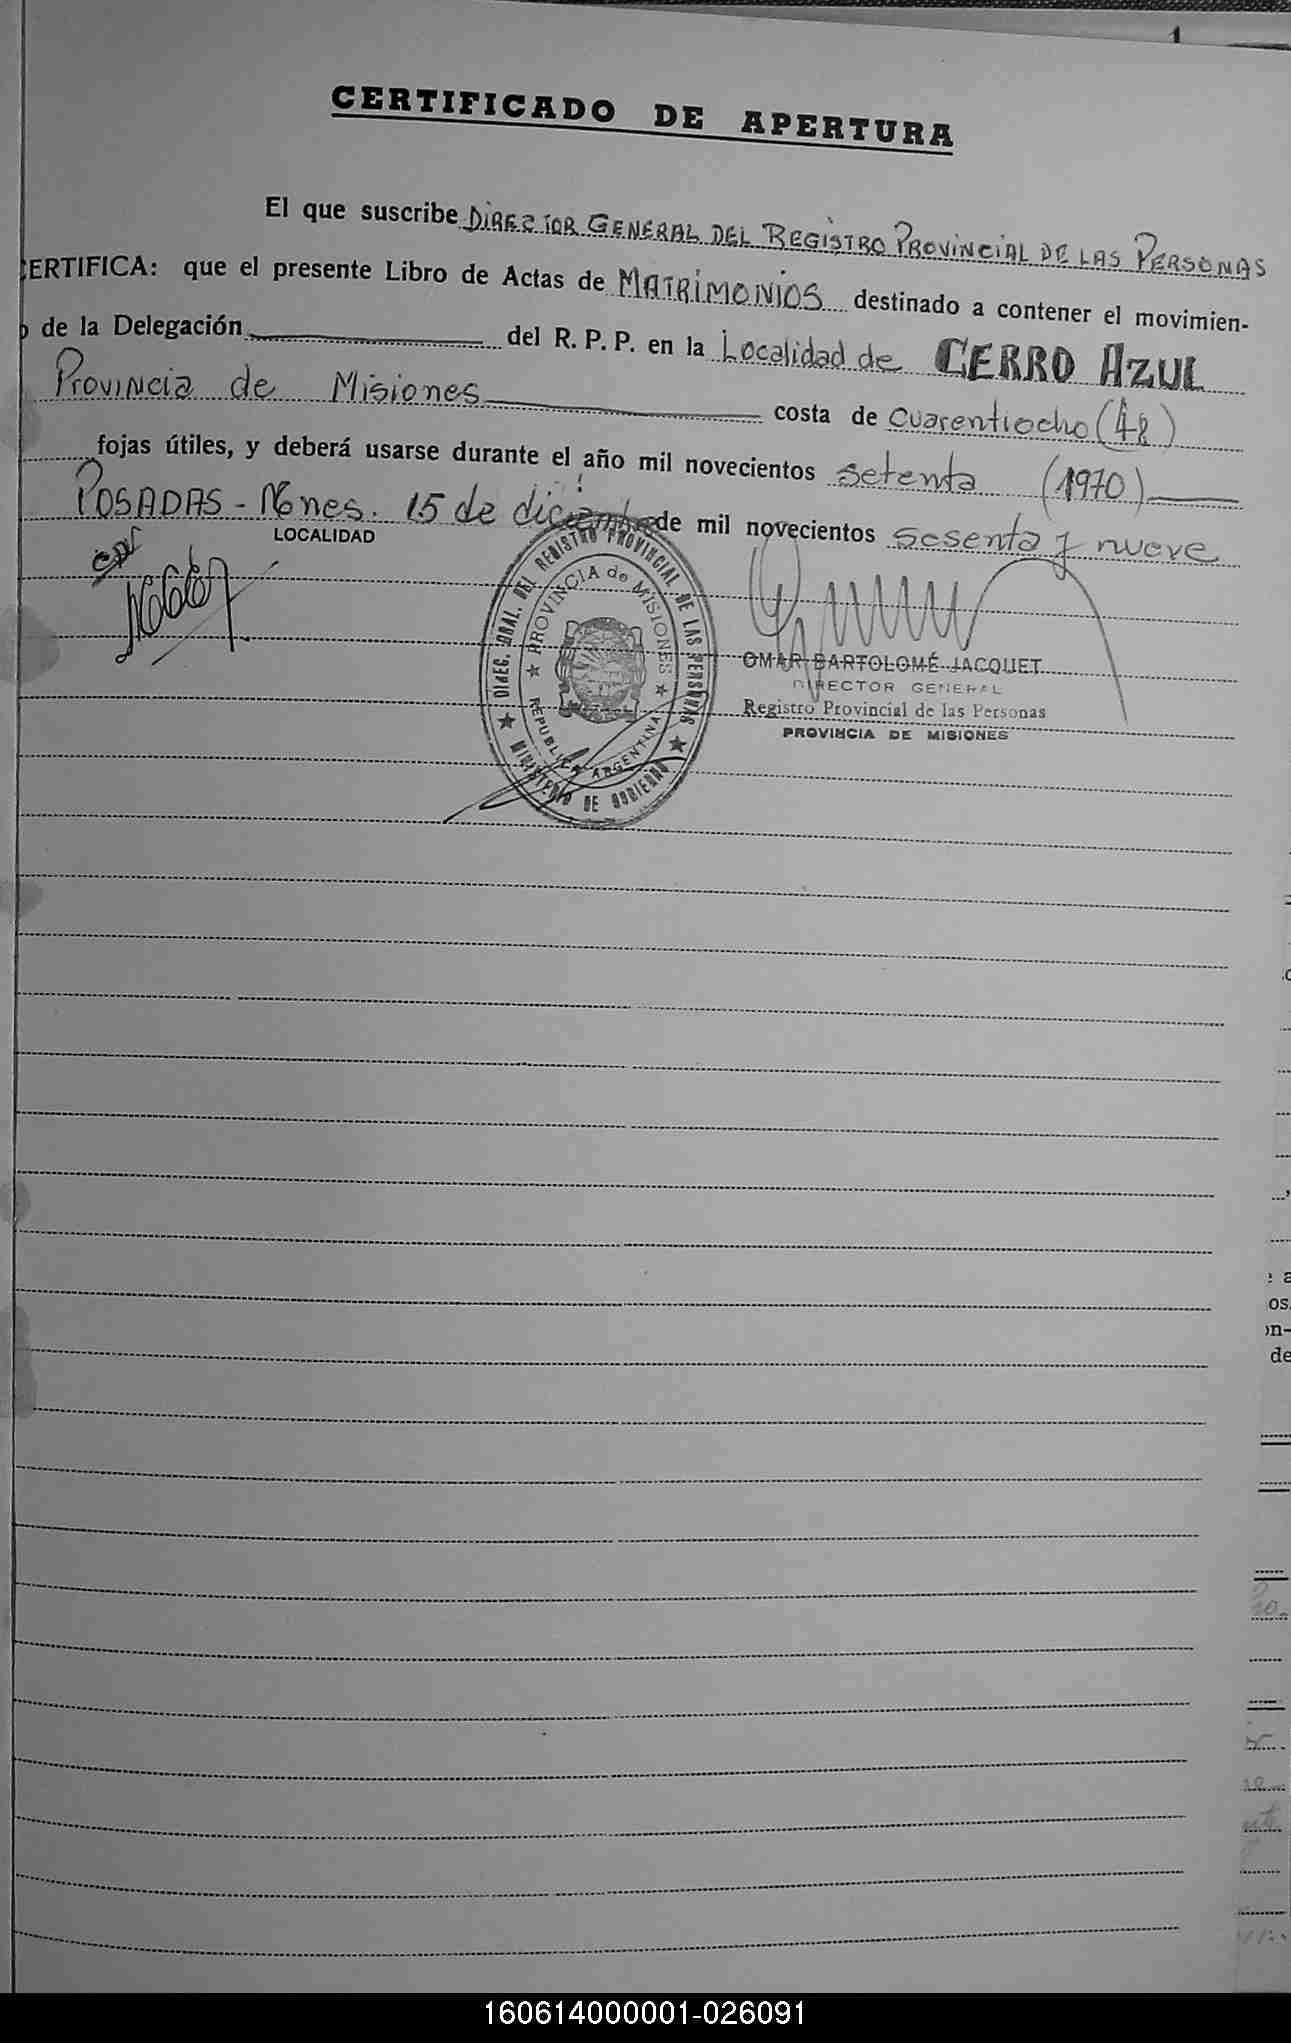 CERTIFICADO DE APERTURA
El que suscribe DIRECTOR GENERAL DEL REGISTRO PROVINCIAL DE LAS PERSONAS
CERTIFICA: que el presente Libro de Actas de MATRIMONIOS destinado a contener el movimien-
o de la Delegación del R. P. P. en la Localidad de CERRO AZUL
Provincia de Misiones costa de cuarentiocho (48)
fojas útiles, y deberá usarse durante el año mil novecientos setenta (1970)
POSADAS - Mnes. 15 de diciembre de mil novecientos sesenta y nueve
LOCALIDAD
DIREC. GRAL. DEL REGISTRO PROVINCIAL DE LAS PERSONAS
PROVINCIA de MISIONES
REPUBLICA ARGENTINA
MINISTERIO DE GOBIERNO
OMAR BARTOLOMÉ JACQUET
DIRECTOR GENERAL
Registro Provincial de las Personas
PROVINCIA DE MISIONES
os.
on-
de
160614000001-026091